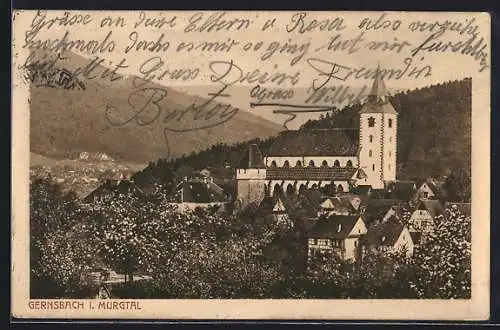 Grüsse an deine Eltern u Rosa also verzeihe
nochmals dachs es mir so ging tut mir furchtbar
Leid Mit Gruss Deine Freundin
Berty Gruss Wilhelm
GERNSBACH I. MURGTAL